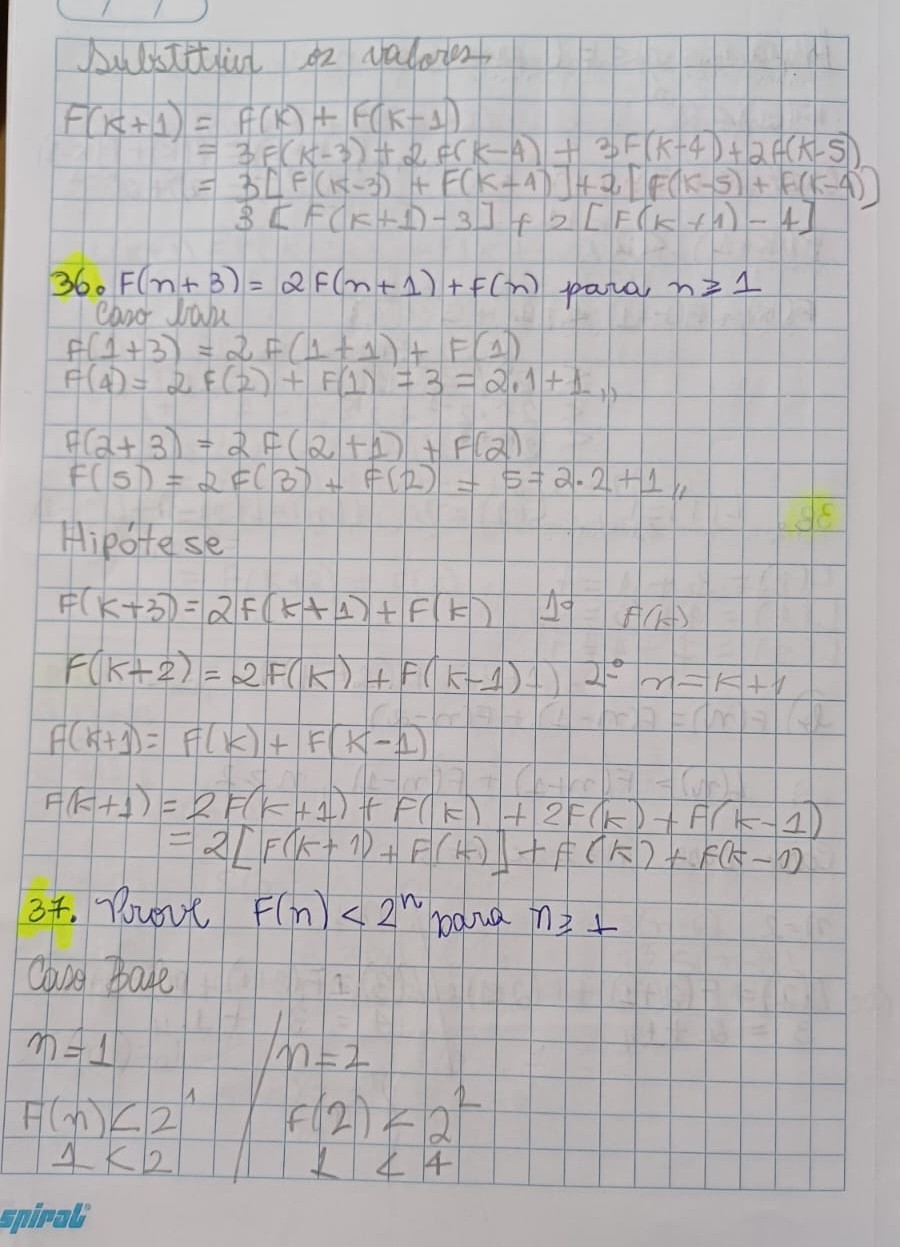 Substituir os valores
F(K+1) = F(K) + F(K-1)
= 3F(K-3) + 2F(K-4) + 3F(K-4) + 2F(K-5)
= 3[F(K-3) + F(K-4)] + 2[F(K-5) + F(K-4)]
3[F(K+1)-3] + 2[F(K+1)-4]
36. F(n+3) = 2F(n+1) + F(n) para n ≥ 1
Caso base
F(1+3) = 2F(1+1) + F(1)
F(4) = 2F(2) + F(1) = 3 = 2.1+1,,
F(2+3) = 2F(2+1) + F(2)
F(5) = 2F(3) + F(2) = 5 = 2.2+1,,
Hipótese
F(K+3) = 2F(K+1) + F(K) 1º F(K)
F(K+2) = 2F(K) + F(K-1) 2º n=K+1
F(K+1) = F(K) + F(K-1)
F(K+1) = 2F(K+1) + F(K) + 2F(K) + F(K-1)
= 2[F(K+1) + F(K)] + F(K) + F(K-1)
37. Prove F(n) < 2ⁿ para n ≥ 1
Caso Base
n=1 / n=2
F(n) < 2¹ F(2) < 2²
1 < 2 1 < 4
spiral